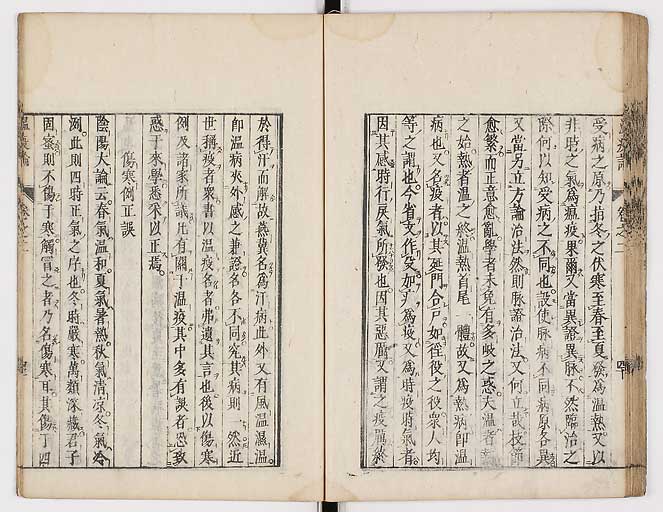 受病之原乃指冬之伏寒至春至夏發為溫熱又以
非時之氣為瘟疫果爾又當異證異脉不然臨治之
際何以知受病之不同也設使脉病不同病原各異
又當另立方論治法然則脉證治法又何立哉枝節
愈繁而正意愈亂學者未免有多岐之惑夫溫者熱
之始熱者溫之終溫熱首尾一體故又為熱病即溫
病也又名疫者以其延門合戶如徭役之役衆人均
等之謂也今省文作殳加疒為疫又為時疫時氣者
因其感時行戾氣所發也因其惡厲又謂之疫厲終
於得汗而解故燕冀名為汗病此外又有風溫濕溫
即溫病夾外感之兼證名各不同究其病則一然近
世稱疫者衆書以溫疫名者弗遺其言也後以傷寒
例及諸家所議凡有關于溫疫其中多有誤者恐致
惑于來學悉采以正焉
傷寒例正誤
陰陽大論云春氣溫和夏氣暑熱秋氣清凉冬氣冷
冽此則四時正氣之序也冬時嚴寒萬類深藏君子
固密則不傷于寒觸冒之者乃名傷寒耳其傷于四